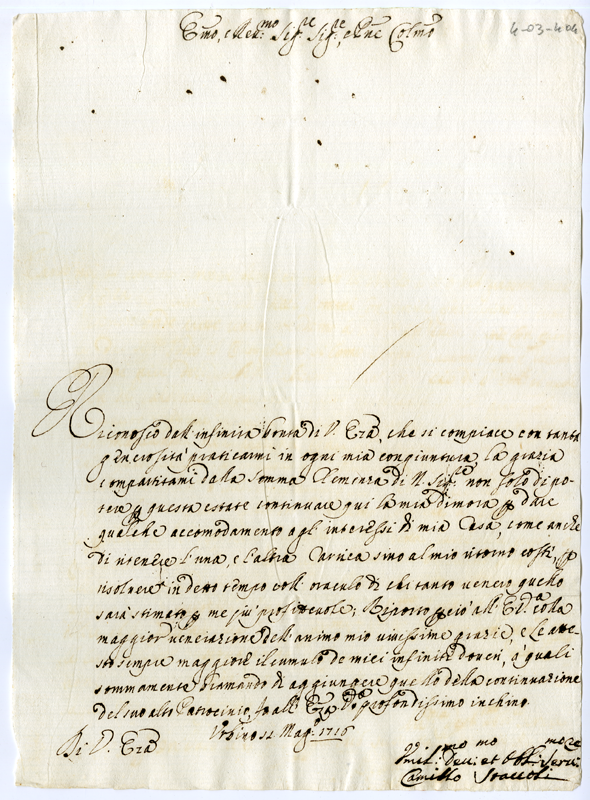 Emo, e Rev.mo Sig.re Sig.re, e Pne Colmo
4-03-404
Riconosco dall'infinita bontà di V. Eza, che si compiace con tanta
generosità praticarmi in ogni mia congiuntura, la grazia
compartitami dalla somma Clemenza di N. Sig.re non solo di po-
tere p questa estate continuare qui la mia dimora p dare
qualche accomodamento agl'interessi di mia Casa, come anche
di ritenere l'una, e l'altra Carica sino al mio ritorno costì, p
risolvere in detto tempo coll'oracolo di chi tanto venero quello
sarà stimato p me più profittevole; Riporto p ciò all'E.V. colla
maggior venerazione dell'animo mio vivissime grazie, e Le atte-
sto sempre maggiore il cumulo de miei infiniti doveri, a' quali
sommamente bramando di aggiungere quello della continuazione
del suo alto Patrocinio, fo all'Eza Va profondissimo inchino.
Urbino 12 Mag.o 1716
Di V. Eza
Umil. Dev. et Obb. Serv.re
Camillo Staccoli